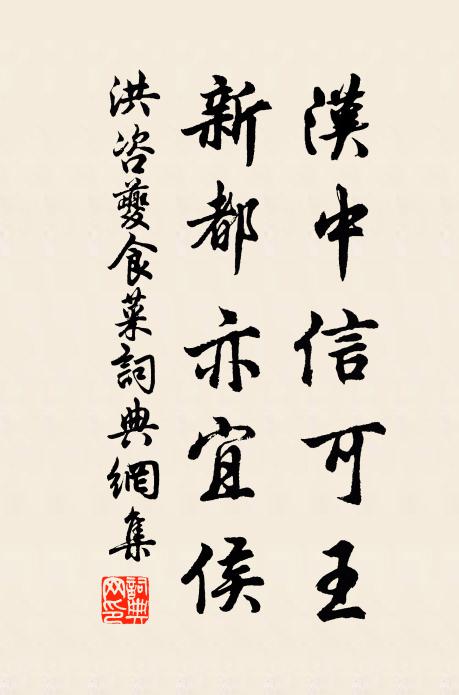 漢中信可王
新都亦宜侯
洪咨夔食菜詞典網集
詞典
网印